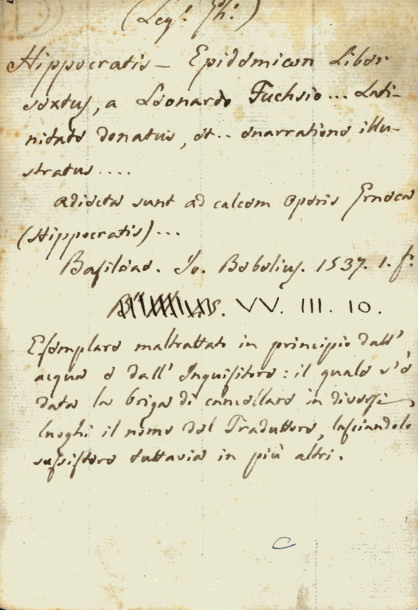 (Leg. Ph.)
Hippocratis – Epidemicon Liber
sextus, a Leonardo Fuchsio... Lati-
nitate donatus, et .. enarratione illu-
stratus ....
adiecta sunt ad calcem operis Graeca
(Hippocratis)...
Basileae. Jo. Bebelius. 1537. 1. f.
VV. III. 10.
Esemplare maltrattato in principio dall'
acqua e dall' Inquisitore: il quale s'è
data la briga di cancellare in diversi
luoghi il nome del Traduttore, lasciandolo
sussistere tuttavia in più altri.
C